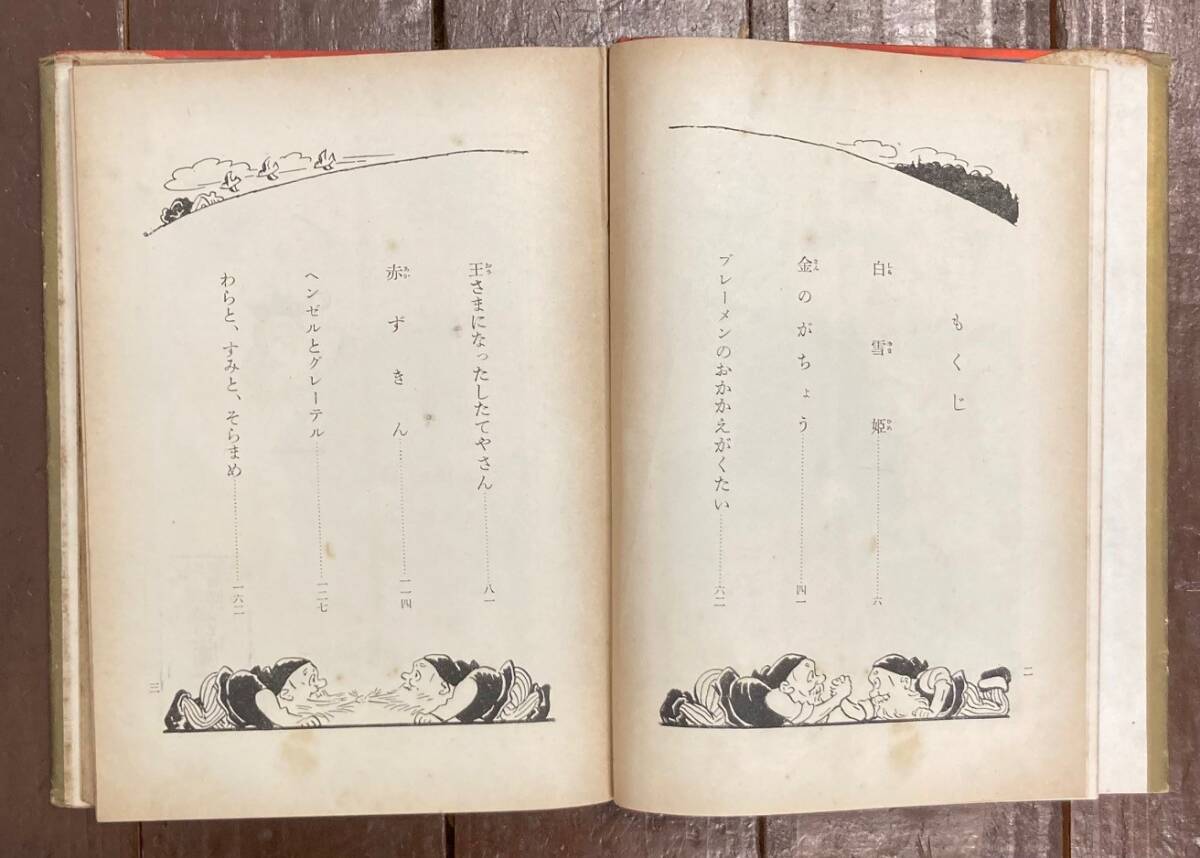 もくじ
白雪姫……………六
金のがちょう……………四一
ブレーメンのおかかえがくたい……………六二
二
王さまになったしたてやさん……………八一
赤ずきん……………一一四
ヘンゼルとグレーテル……………一二七
わらと、すみと、そらまめ……………一六二
三